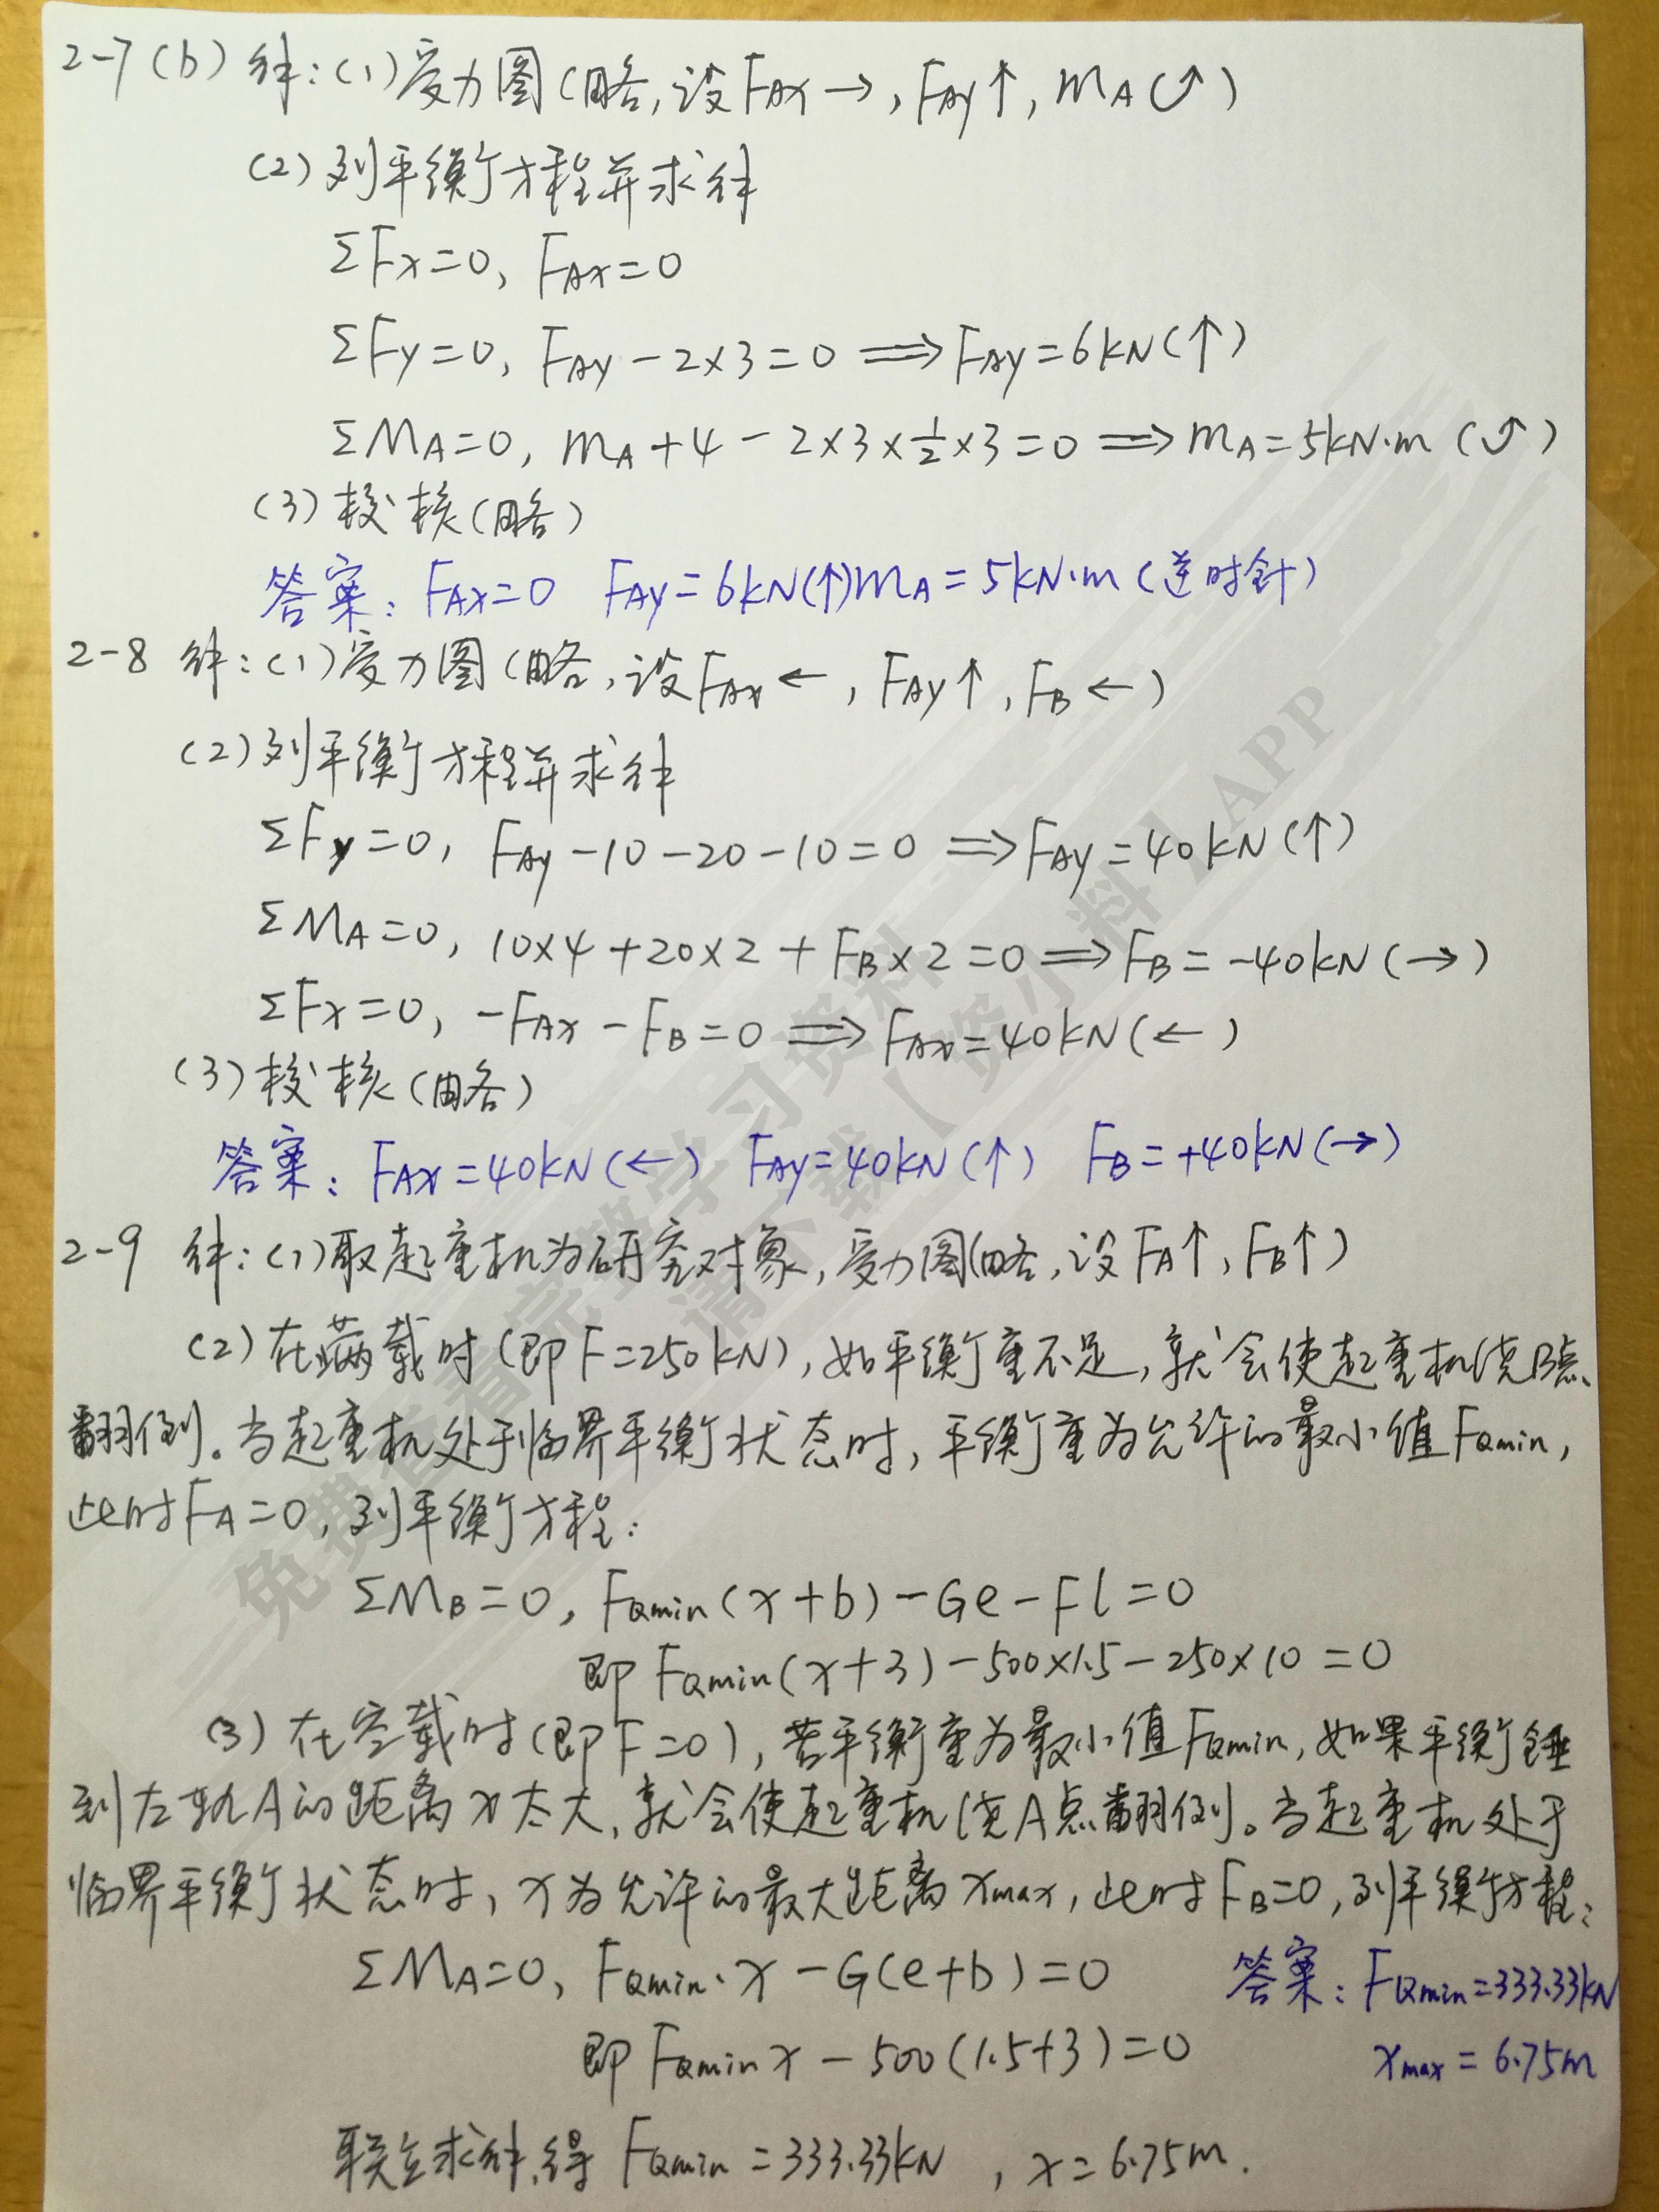 2-7(b) 解:(1)受力图(略,设FAx→,FAy↑,mA↺)
(2)列平衡方程并求解
ΣFx=0, FAx=0
ΣFy=0, FAy-2×3=0 ⟹FAy=6kN(↑)
ΣMA=0, mA+4-2×3×½×3=0 ⟹mA=5kN·m (↺)
(3)校核(略)
答案: FAx=0 FAy=6kN(↑)mA=5kN·m(逆时针)
2-8 解:(1)受力图(略,设FAx←,FAy↑,FB←)
(2)列平衡方程并求解
ΣFy=0, FAy-10-20-10=0 ⟹FAy=40kN(↑)
ΣMA=0, 10×4+20×2+FB×2=0⟹FB=-40kN(→)
ΣFx=0, -FAx-FB=0⟹FAx=40kN(←)
(3)校核(略)
答案: FAx=40kN(←) FAy=40kN(↑) FB=+40kN(→)
2-9 解:(1)取起重机为研究对象,受力图(略,设FA↑,FB↑)
(2)在满载时(即F=250kN),如平衡重不足,就会使起重机绕B点
翻倒。当起重机处于临界平衡状态时,平衡重为允许的最小值FQmin,
此时FA=0,列平衡方程:
ΣMB=0, FQmin(x+b)-Ge-Fl=0
即 FQmin(x+3)-500×1.5-250×10=0
(3)在空载时(即F=0),若平衡重为最小值FQmin,如果平衡锤
到左轨A的距离x太大,就会使起重机绕A点翻倒。当起重机处于
临界平衡状态时,x为允许的最大距离xmax,此时FB=0,列平衡方程:
ΣMA=0, FQmin·x-G(e+b)=0 答案: FQmin=333.33kN
即 FQmin x-500(1.5+3)=0 xmax=6.75m
联立求解,得 FQmin=333.33kN , x=6.75m.
免费查看完整学习资料
请下载【资小料】APP